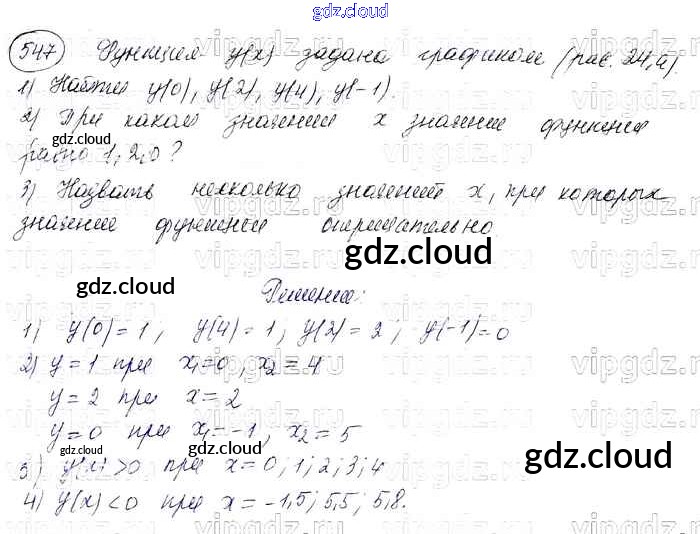 gdz.cloud
547 Функция y(x) задана графиком (рис. 24, а).
1) Найти y(0), y(2), y(4), y(-1).
2) При каком значении x значение функции
gdz.cloud gdz.cloud
равно 1, 2, 0?
3) Назвать несколько значений x, при которых
значение функции отрицательно
gdz.cloud
gdz.cloud
Решение:
1) y(0)=1, y(4)=1; y(2)=2; y(-1)=0
2) y=1 при x₁=0, x₂=4
gdz.cloud
y=2 при x=2
y=0 при x₁=-1, x₂=5
gdz.cloud gdz.cloud gdz.cloud
3) y(x)>0 при x=0; 1; 2; 3; 4
4) y(x)<0 при x=-1,5; 5,5; 5,8.